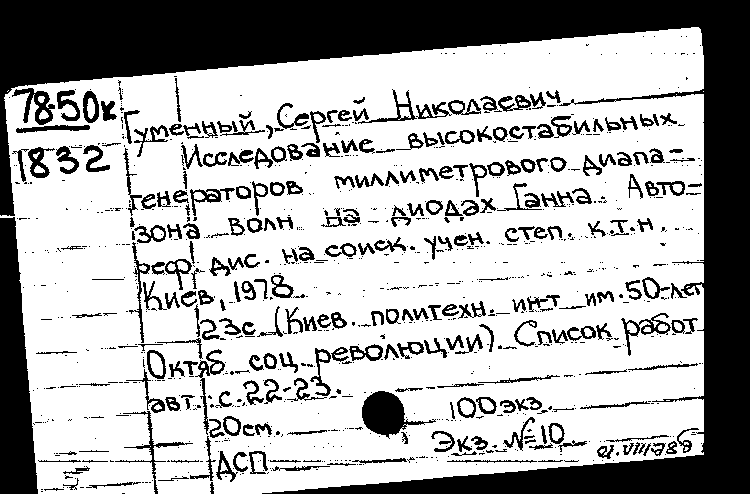 78-50к
1832
Гуменный, Сергей Николаевич.
Исследование высокостабильных
генераторов миллиметрового диапа-
зона волн на диодах Ганна. Авто-
реф. дис. на соиск. учен. степ. к.т.н.
Киев, 1978.
23с. (Киев. политехн. ин-т им. 50-лет
Октяб. соц. революции). Список работ
авт.: с. 22-23.
20см. 100экз.
ДСП Экз. №10